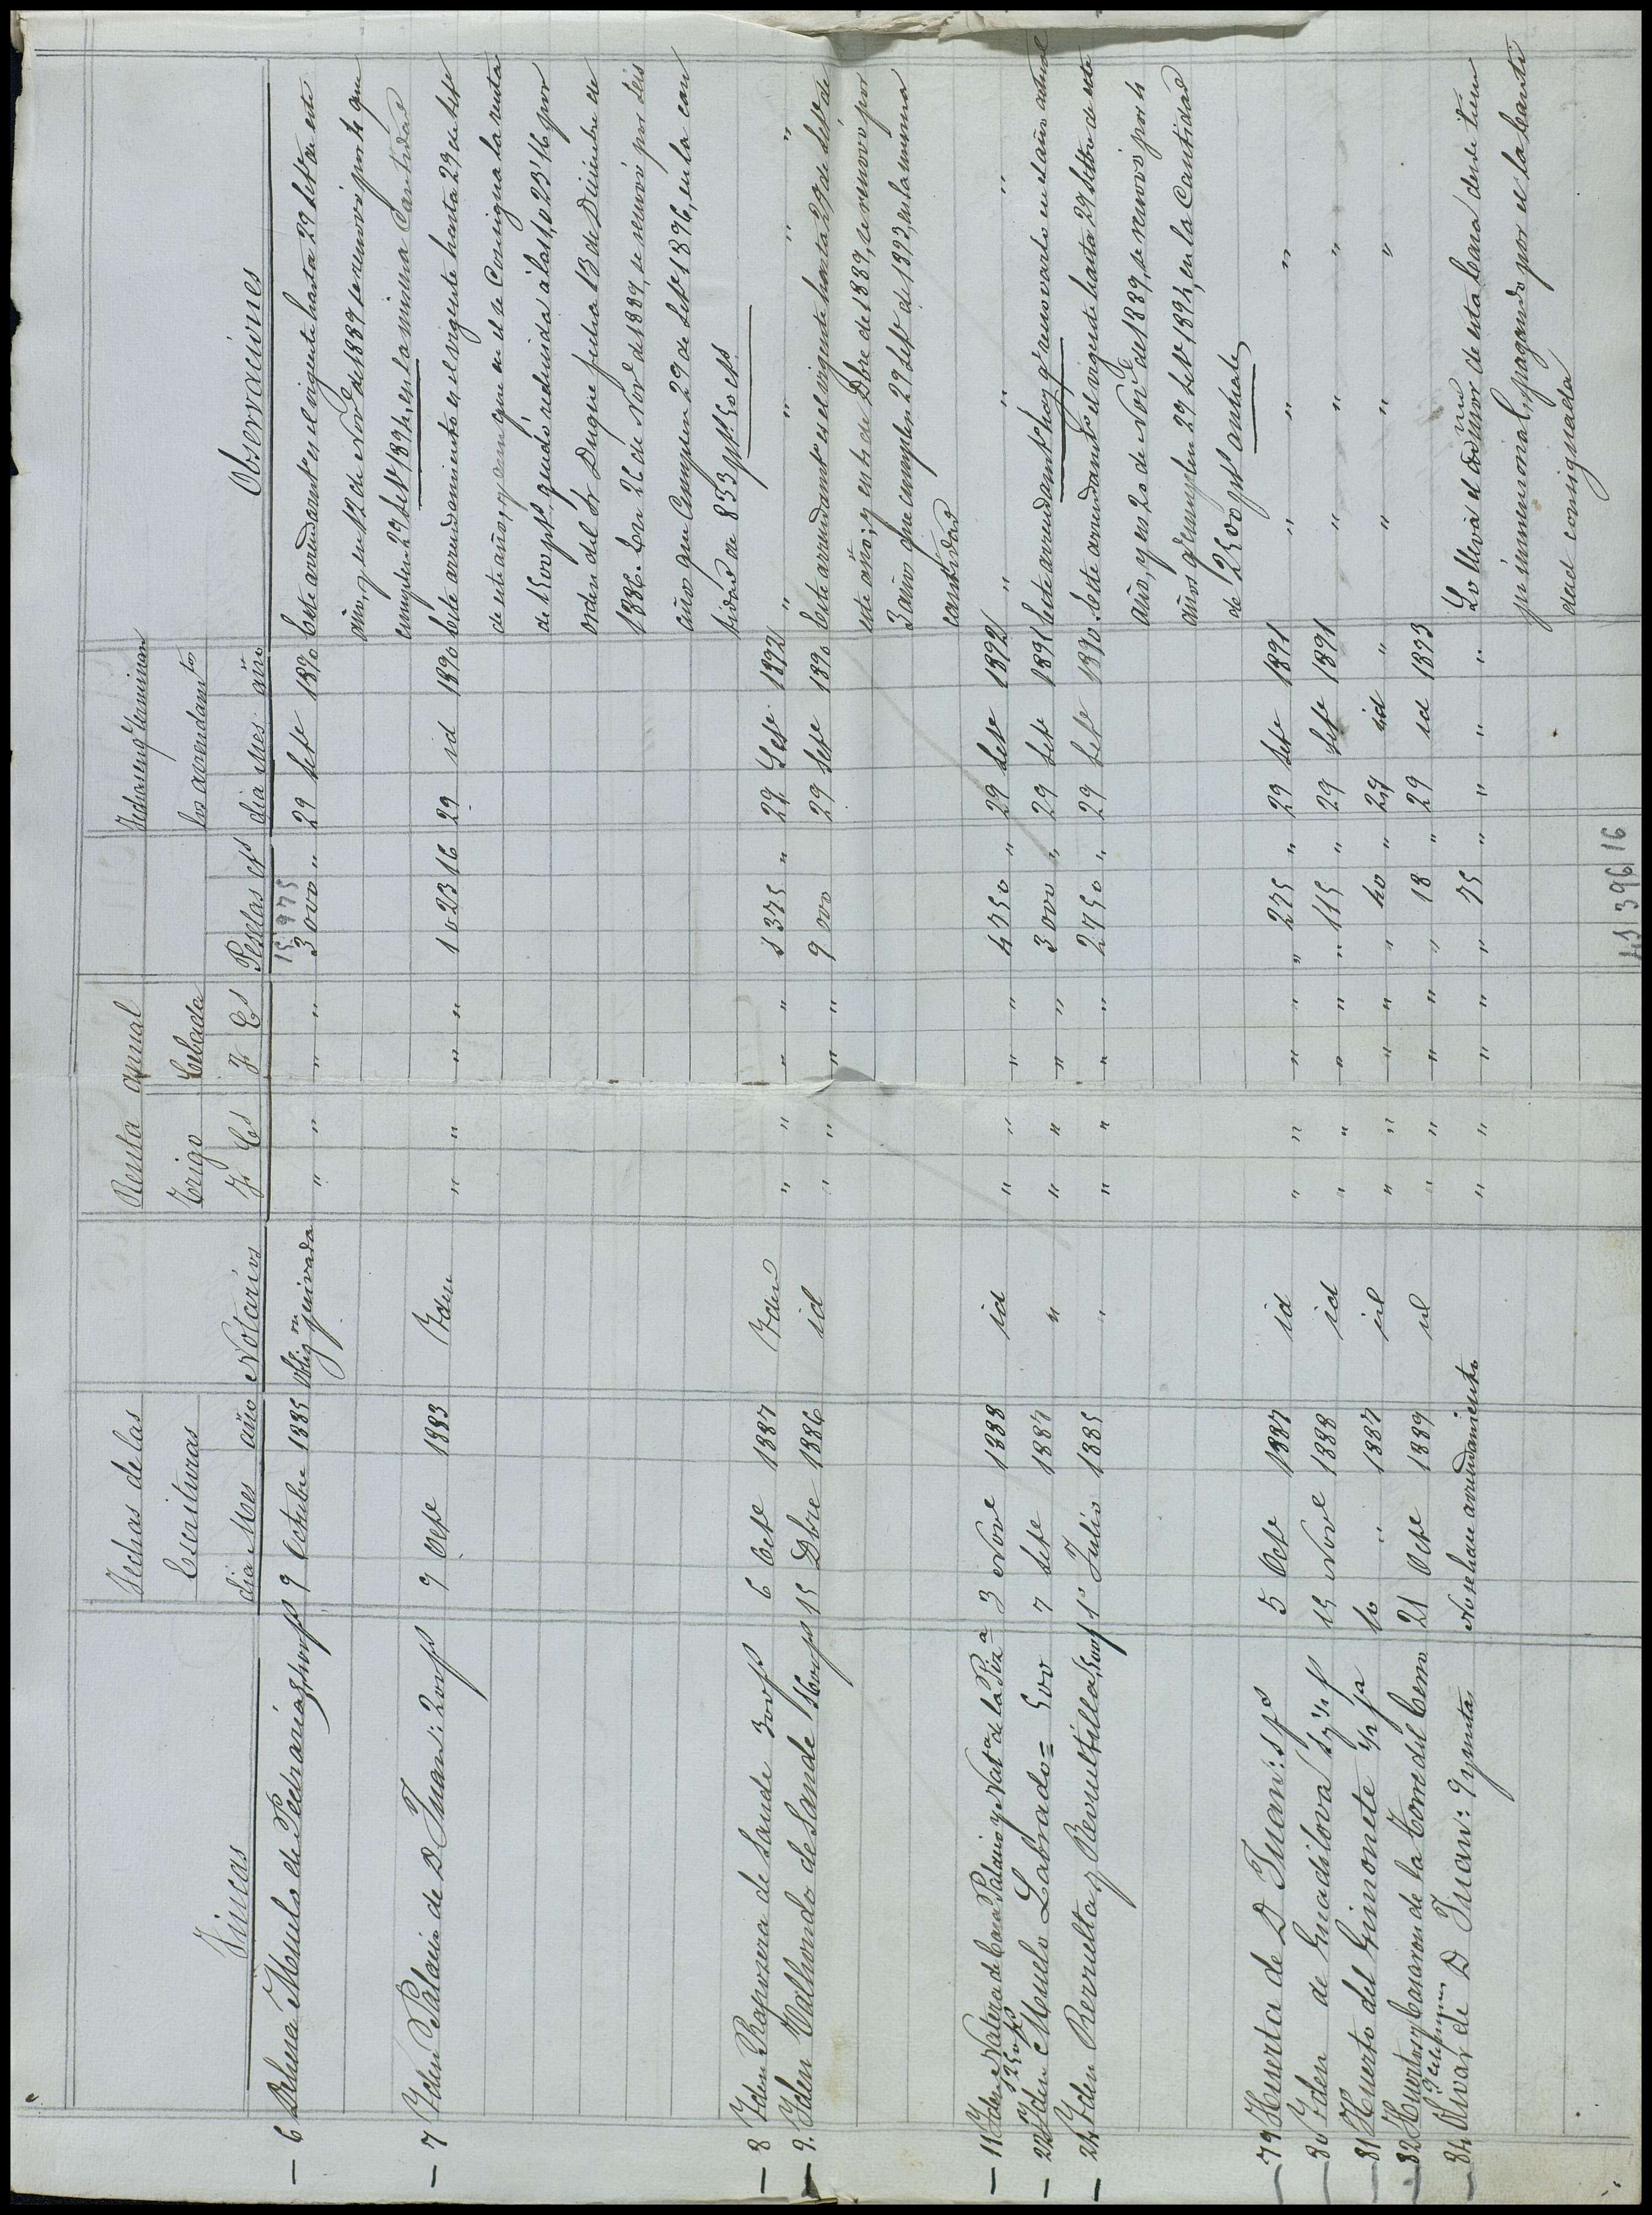 Fincas Fechas de las Escrituras Notarios Renta anual Fechas en q.e terminan los arrendam.tos Observaciones
dia Mes año Trigo Cebada Pesetas cts dia Mes año
F Cs F Cs
15975
6 Dehesa Muelo de Pedrarias 9 Octubre 1885 Oblig.on privada " " " " 3000 " 29 Sete 1890 Este arrendamt.o es el vigente hasta 29 Set.e de este
año, y en 12 de Nov.e de 1889 se renovó por 4 que
cumplen 29 Set.e 1894, en la misma Cantidad
7 Yden Palacio de D Juan: 200 fs 9 Octe 1883 Yden " " " " 1023 16 29 id 1890 Este arrendamiento es el vigente hasta 29 de Sete
de este año, y aun que en el se consigna la renta
de 1500 pts, quedó reducida a las 1,023'16 por
orden del Sr Duque fecha 13 de Diciembre de
1886. En 26 de Nov.e de 1889, se renovó por seis
años que cumplen 29 de Set.e 1896, en la can
tidad de 833 pts 50 cts
8 Yden Raposera de Sande 300 fs 6 Octe 1887 Yden " " " " 1375 " 29 Sete 1892 " " " "
9. Yden Valhondo de Sande 1600 fs 15 Dbre 1886 id " " " " 9000 29 Sete 1890 Este arrendamt.o es el vigente hasta 29 de Set.e de
este año; y en 4 de Dbre de 1889, se renovó por
3 años que cumplen 29 Set.e de 1893, en la misma
cantidad
11 Yden Natera de Casa Palacio y Nat.a de la Piz.a 1250 fs 3 Nove 1888 id " " " " 4750 " 29 Sete 1892 " " " "
22 Yden Muelo Labrado = 500 7 Sete 1887 " " " " " 3000 " 29 Sete 1891 Este arrendamt.o hay q.e renovarlo en el año actual
24 Yden Revuelta y Revueltilla, 500 fs 1º Julio 1885 " " " " " 2750 " 29 Sete 1890 Este arrendamt.o es el vigente hasta 29 Setbre de este
año, y en 20 de Nov.e de 1889, se renovó por 4
años q.e cumplen 29 Set.e 1894, en la Cantidad
de 2500 pts anuales
79 Huerta de D Juan: 5 fs 5 Octe 1887 id " " " " " 275 " 29 Sete 1891 " " "
80 Yden de Guadilova 15 Nove 1888 id " " " " " 115 " 29 Sete 1891 " " "
81 Huerto del Guimonete ½ fa 10 " 1887 id " " " " " 40 " 29 id " " " "
82 Huertos y Casaron de la Torre del Cerro 21 Octe 1889 id " " " " " 18 " 29 id 1893
84 Olivar de D Juan: 9 No se hace arrendamiento " " " " " 75 " " " " Lo lleva el de esta Casa desde tiem
po inmemorial, pagando por el la canti
dad consignada
41396 16